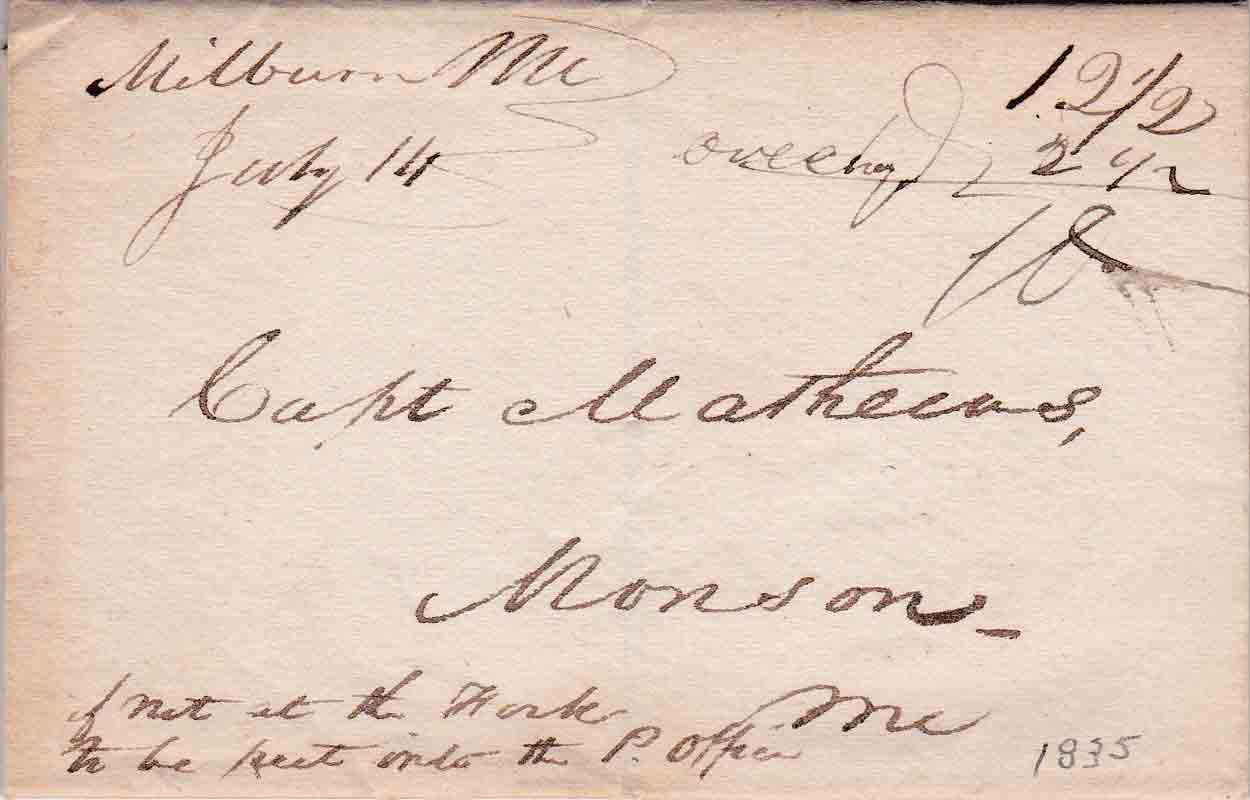 Milburn Me
July 14
12 1/2
overchg 2 1/2
10
Capt Mathews,
Monson_
Me
if not at the Fork
to be put into the P. Office
1835